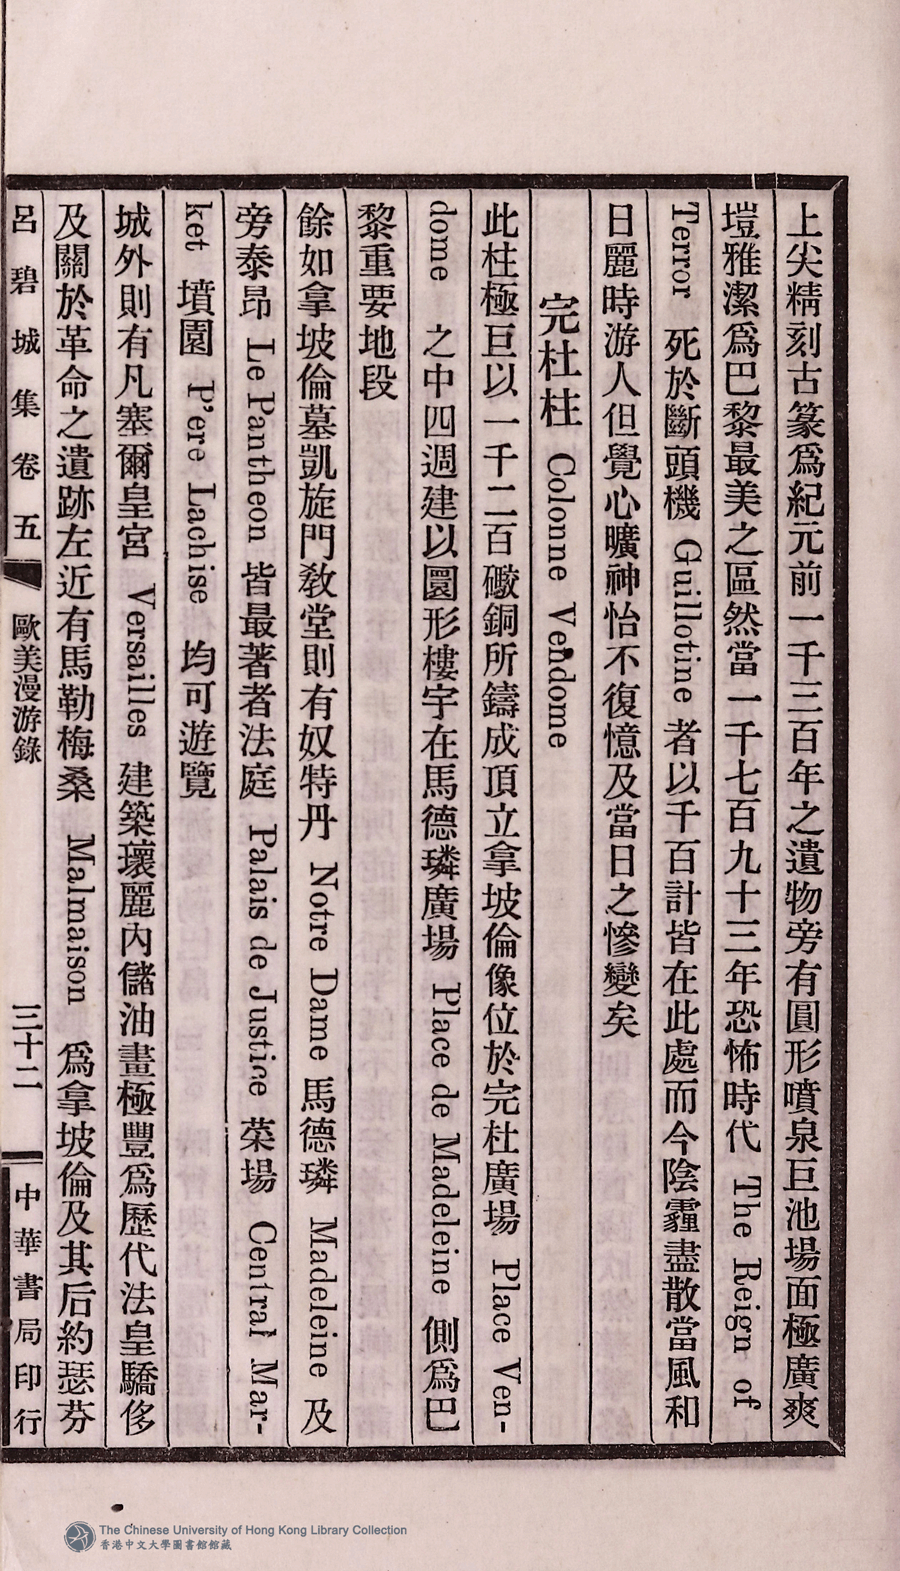 上尖精刻古篆爲紀元前一千三百年之遺物旁有圓形噴泉巨池場面極廣爽
塏雅潔爲巴黎最美之區然當一千七百九十三年恐怖時代 The Reign of
Terror 死於斷頭機 Guillotine 者以千百計皆在此處而今陰霾盡散當風和
日麗時游人但覺心曠神怡不復憶及當日之慘變矣
完杜柱 Colonne Vendome
此柱極巨以一千二百礮銅所鑄成頂立拿坡倫像位於完杜廣場 Place Ven-
dome 之中四週建以圜形樓宇在馬德璘廣場 Place de Madeleine 側爲巴
黎重要地段
餘如拿坡倫墓凱旋門教堂則有奴特丹 Notre Dame 馬德璘 Madeleine 及
旁泰昂 Le Pantheon 皆最著者法庭 Palais de Justice 菜場 Central Mar-
ket 墳園 P'ere Lachise 均可遊覽
城外則有凡塞爾皇宮 Versailles 建築瓌麗內儲油畫極豐爲歷代法皇驕侈
及關於革命之遺跡左近有馬勒梅桑 Malmaison 爲拿坡倫及其后約瑟芬
呂碧城集卷五 歐美漫游錄 三十二 中華書局印行
The Chinese University of Hong Kong Library Collection
香港中文大學圖書館館藏